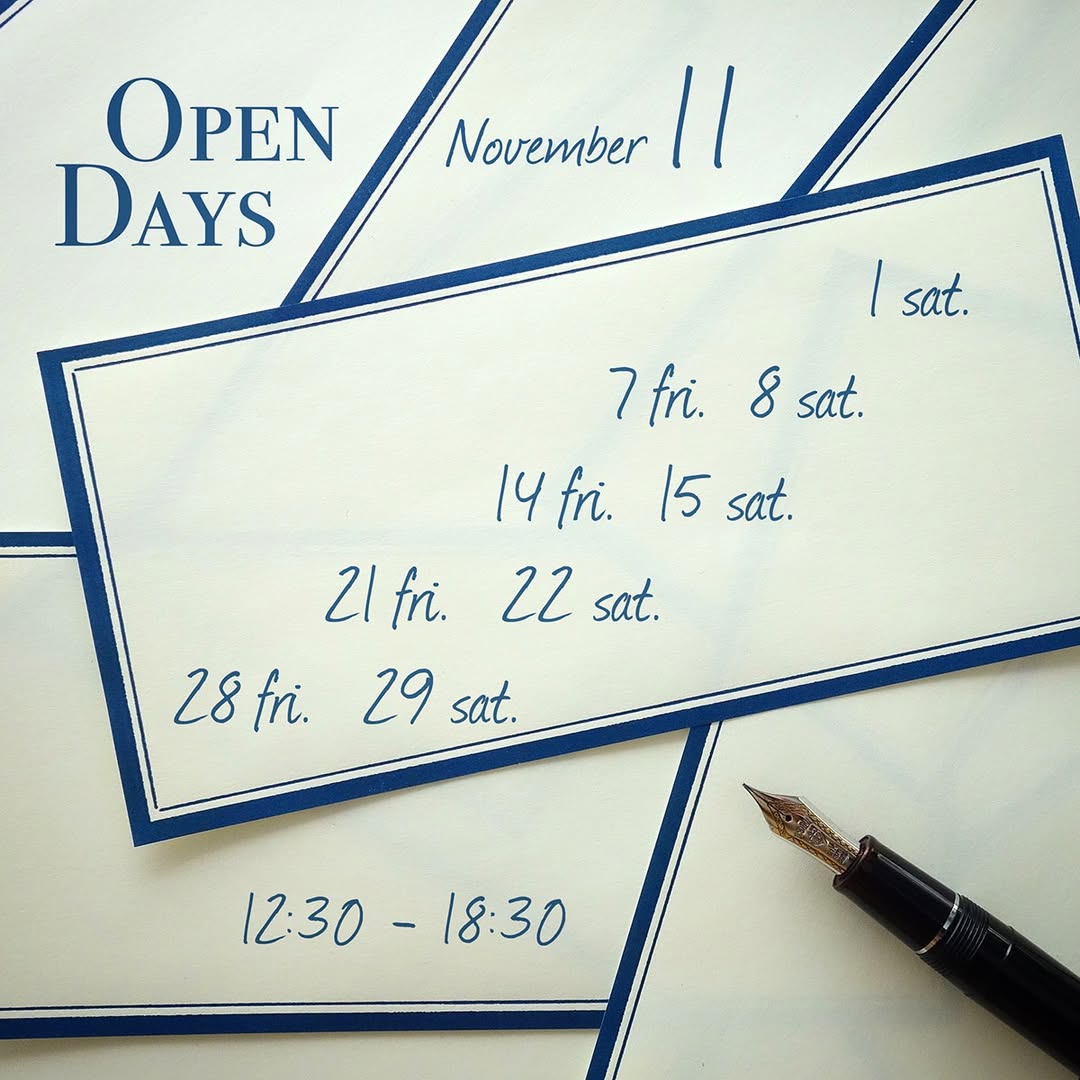 OPEN
DAYS
November 11
1 sat.
7 fri. 8 sat.
14 fri. 15 sat.
21 fri. 22 sat.
28 fri. 29 sat.
12:30 - 18:30